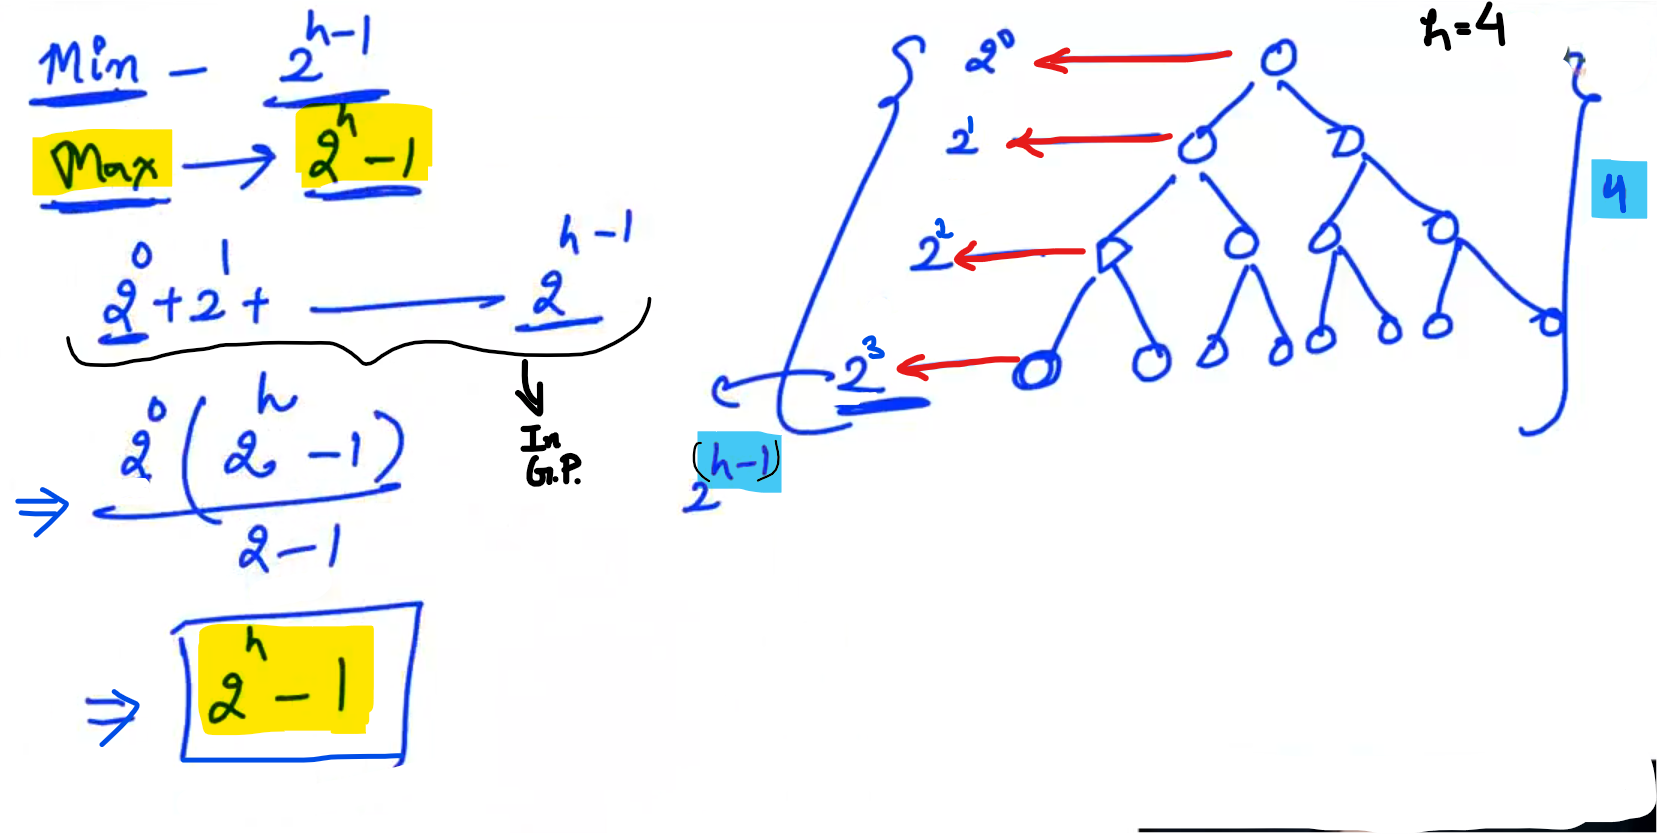 Min - 2^(h-1)
Max → 2^h - 1
2^0 + 2^1 + —— 2^(h-1)
In
G.P.
⇒ 2^0 (2^h - 1) / 2-1
⇒ 2^h - 1
h=4
2^0
2^1
4
2^2
2^3
2^(h-1)